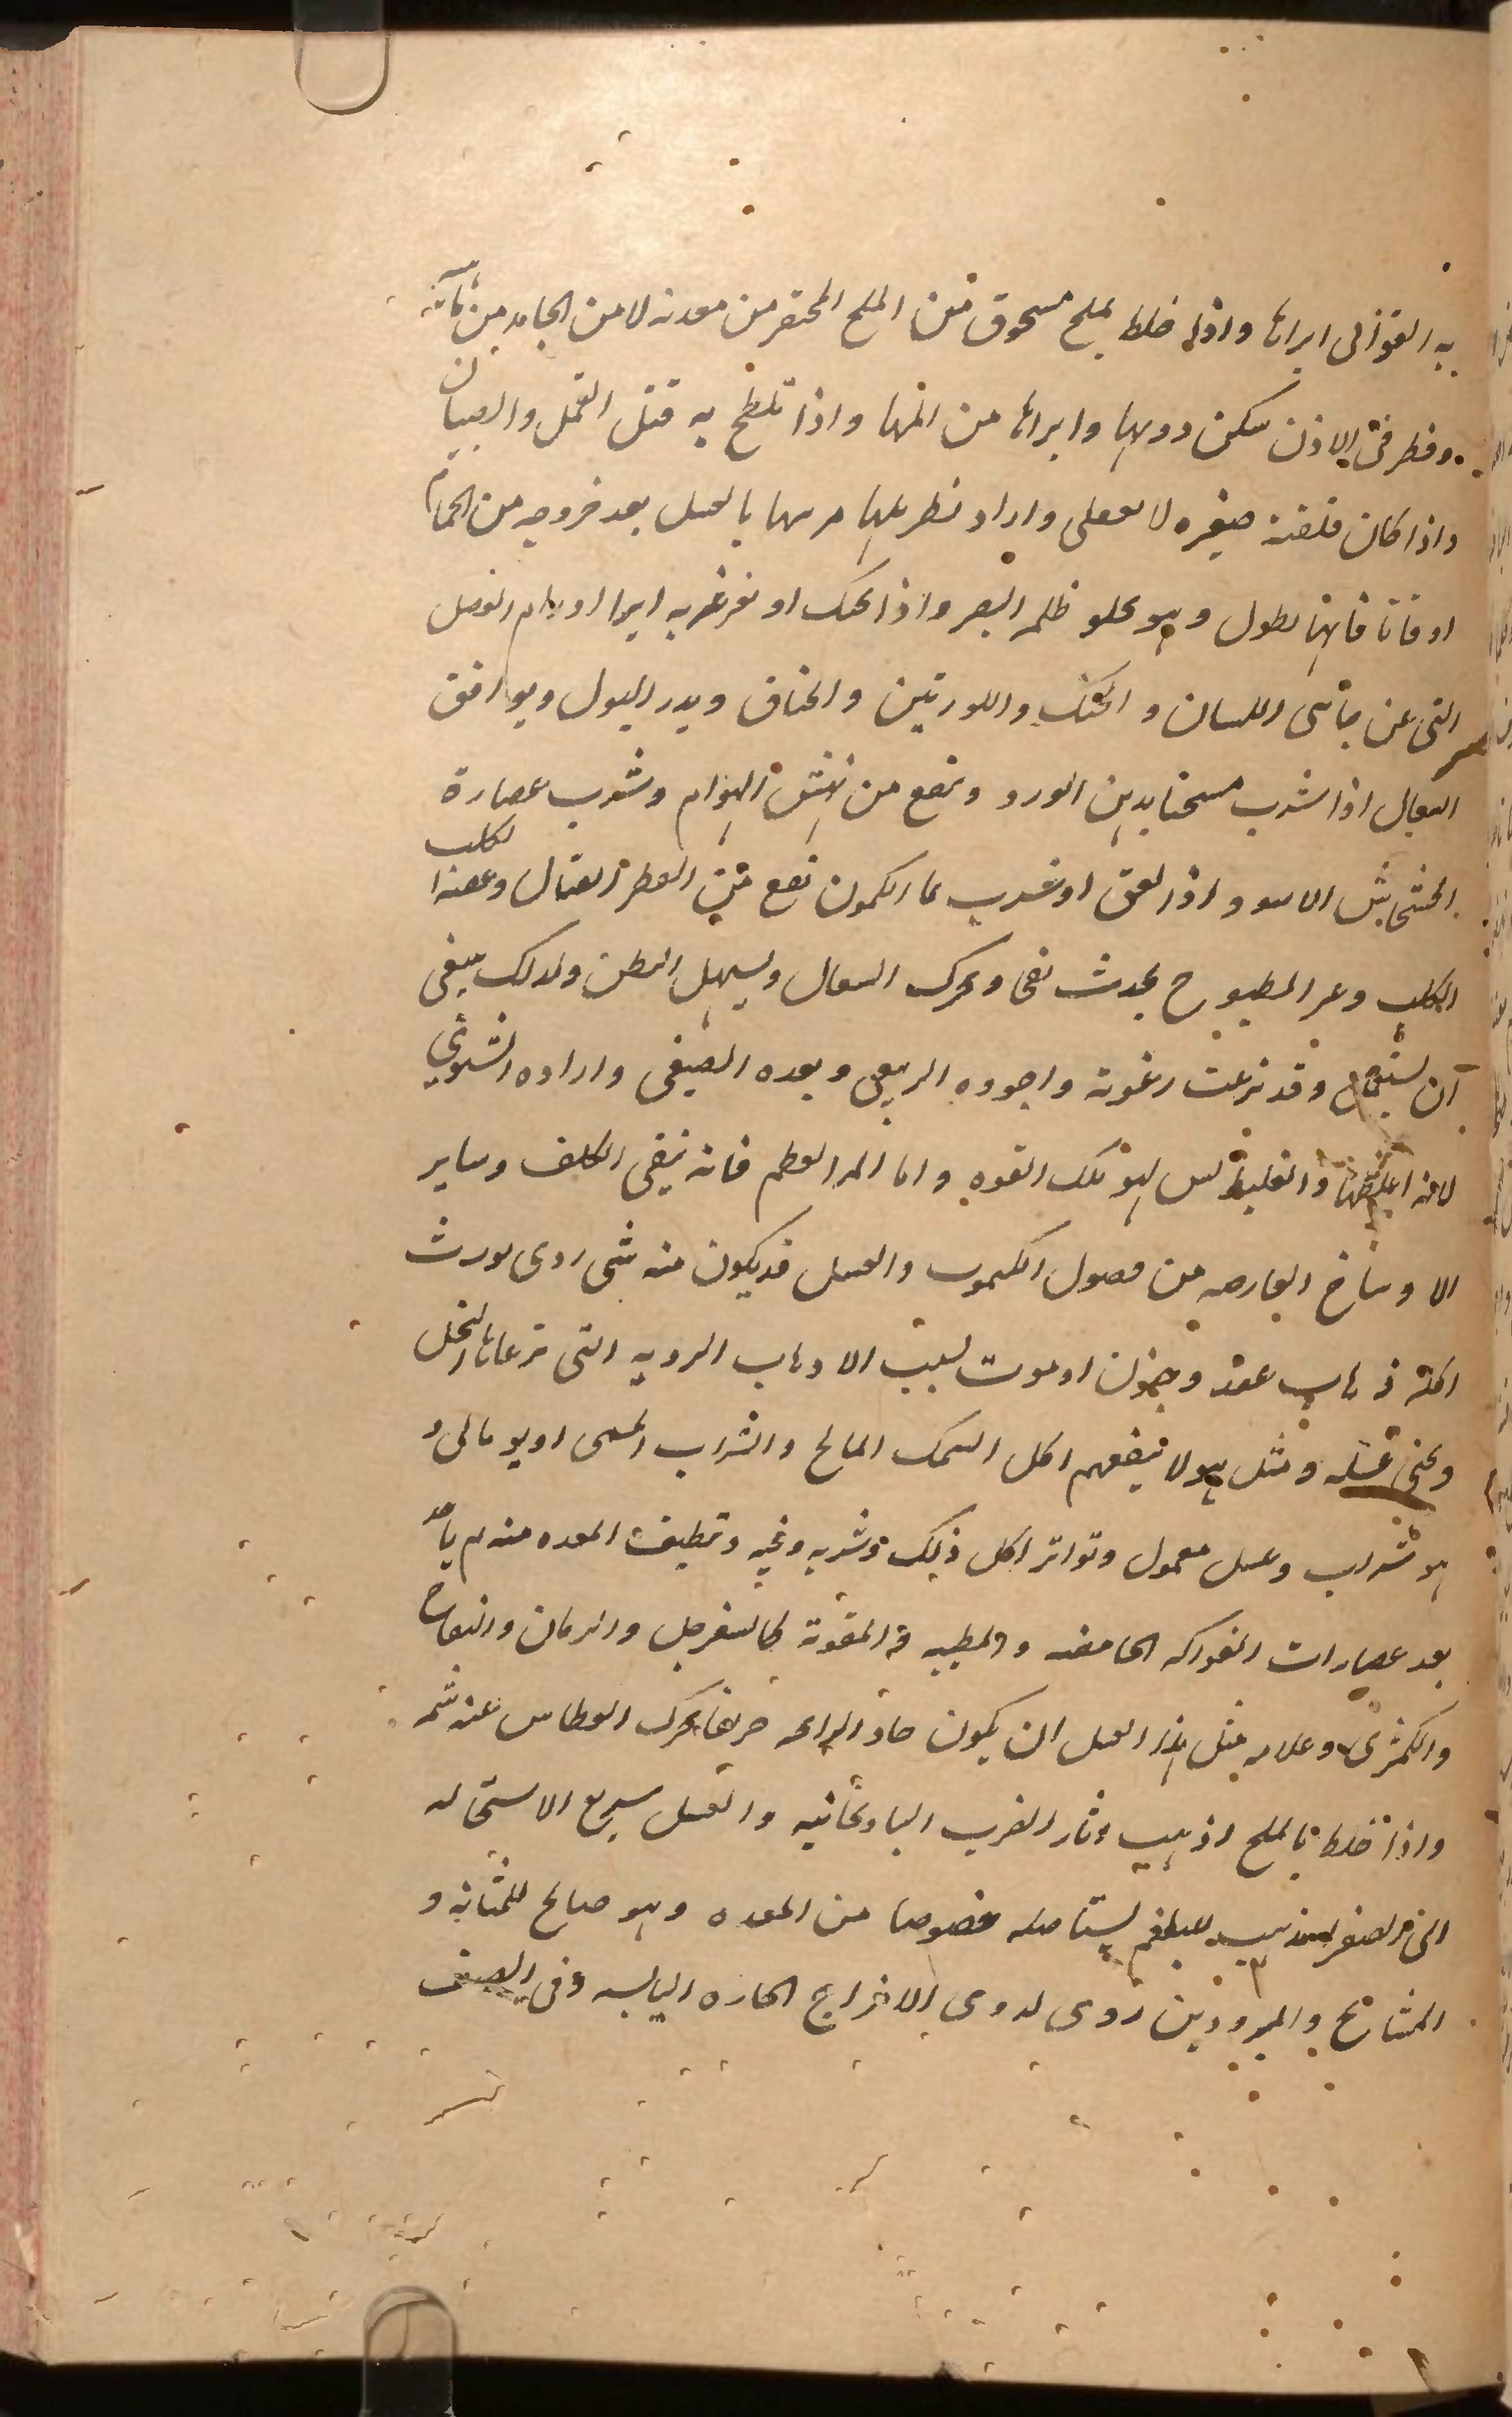 به القوابى ابراها واذا خلط بملح مسحوق من الملح المحتفر من معدنه لا من الجامد من مآئه
وقطر فى الاذن سكن دويها وابراها من المها واذا تلطخ به قتل القمل والصيبان
واذا كان قلفته صغيره لا وارا د بالعسل بعد خروجه من الحمام
اوقاتا فانها تطول وهو يجلو ظلمه البصر واذا تحنك او تغرغر به ابرا اورام العضل
التى عن جانبى اللسان والحنك واللوزتين والخناق ويدر البول ويوافق
السعال اذا شرب مسخنا بدهن الورد ونفع من نهش الهوام وشرب عصارة
الخشخاش الاسود واذا لعق او شرب نفع من الفطر القتال وعضه الكلب
الكلب وغير المطبوخ يحدث نفخا ويحرك السعال ويسهل البطن ولذلك ينبغى
ان يستعمل وقد نزعت رغوته واجوده الربيعى وبعده الصيفى واراده الشتوي
لانه اغلظها والغليظ ليس له تلك القوه واما المر الطعم فانه ينقى الكلف وساير
الاوساخ العارضه من فضول الكيموس والعسل قد يكون منه شى ردى يورث
اكله ذهاب عقل وجنون او موت لسبب الادهاب الرديه التى ترعاها النحل
وتجنى عسله ومثل هولا ينفعهم اكل السمك المالح والشراب المسمى اويومالى و
هو شراب وعسل معمول وتواتر اكل ذلك وشربه وقيه وتنظيف المعده منه ثم ياخذ
بعد عصارات الفواكه الحامضه والطيبه و المقوية كالسفرجل والرمان والتفاح
والكمثرى وعلامه مثل هذا العسل ان يكون حاد الرايحه حريفا يحرك العطاس عند شمه
واذا خلط بالملح اذهب اثار الضرب الباذنجانيه والعسل سريع الاستحاله
الى الصفرا مذهب للبلغم يستاصله خصوصا من المعده وهو صالح للمثانه و
المشايخ والمبرودين ردى لذوى الامزاج الحاره اليابسه وفى الصيف